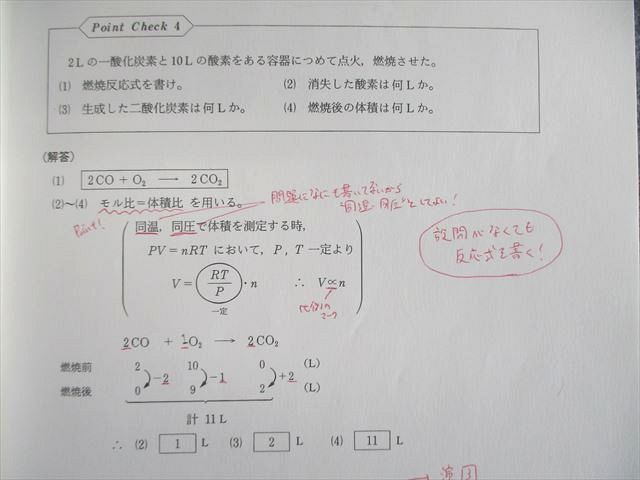 Point Check 4
2Lの一酸化炭素と10Lの酸素をある容器につめて点火,燃焼させた。
(1) 燃焼反応式を書け。 (2) 消失した酸素は何Lか。
(3) 生成した二酸化炭素は何Lか。 (4) 燃焼後の体積は何Lか。
(解答)
(1) 2CO + O₂ ⟶ 2CO₂
問題になにも書いてないから
"同温・同圧"としてよい!
(2)〜(4) モル比=体積比 を用いる。
Point!
同温,同圧で体積を測定する時,
PV=nRT において,P,T 一定より
V= RT/P ・n ∴ V∝n
一定
比例の
マーク
設問がなくても
反応式を書く!
2CO + 1O₂ ⟶ 2CO₂
燃焼前 2 10 0 (L)
−2 −1 +2
燃焼後 0 9 2 (L)
計 11 L
∴ (2) 1 L (3) 2 L (4) 11 L
3